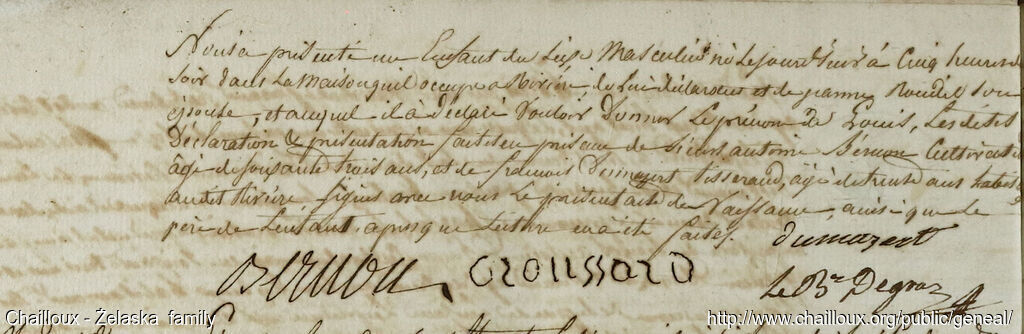 Nous a présenté un Enfant du Sexe Masculin né Le jour d'hier à Cinq heures du
soir dans La Maison quil occupe a Rivière de lui déclarant et de jeanne Roullet Son
épouse, et auquel il à Déclaré Vouloir Donner Le prénom de Louis, Les dites
Déclaration & présentation faites en présence de Sieurs antoine Bernon Cultivateur
âgé de soixante trois ans, et de françois Dumazert tisserand, âgé de trente ans habitant
audit Rivière, Signés avec nous Le présent acte de Naissance, ainsi que le
père de Lenfant, après que Lecture en a été faite.
dumazert
Bernon
Croussard
Le Bon Degraz
Chailloux - Żelaska family
http://www.chailloux.org/public/geneal/